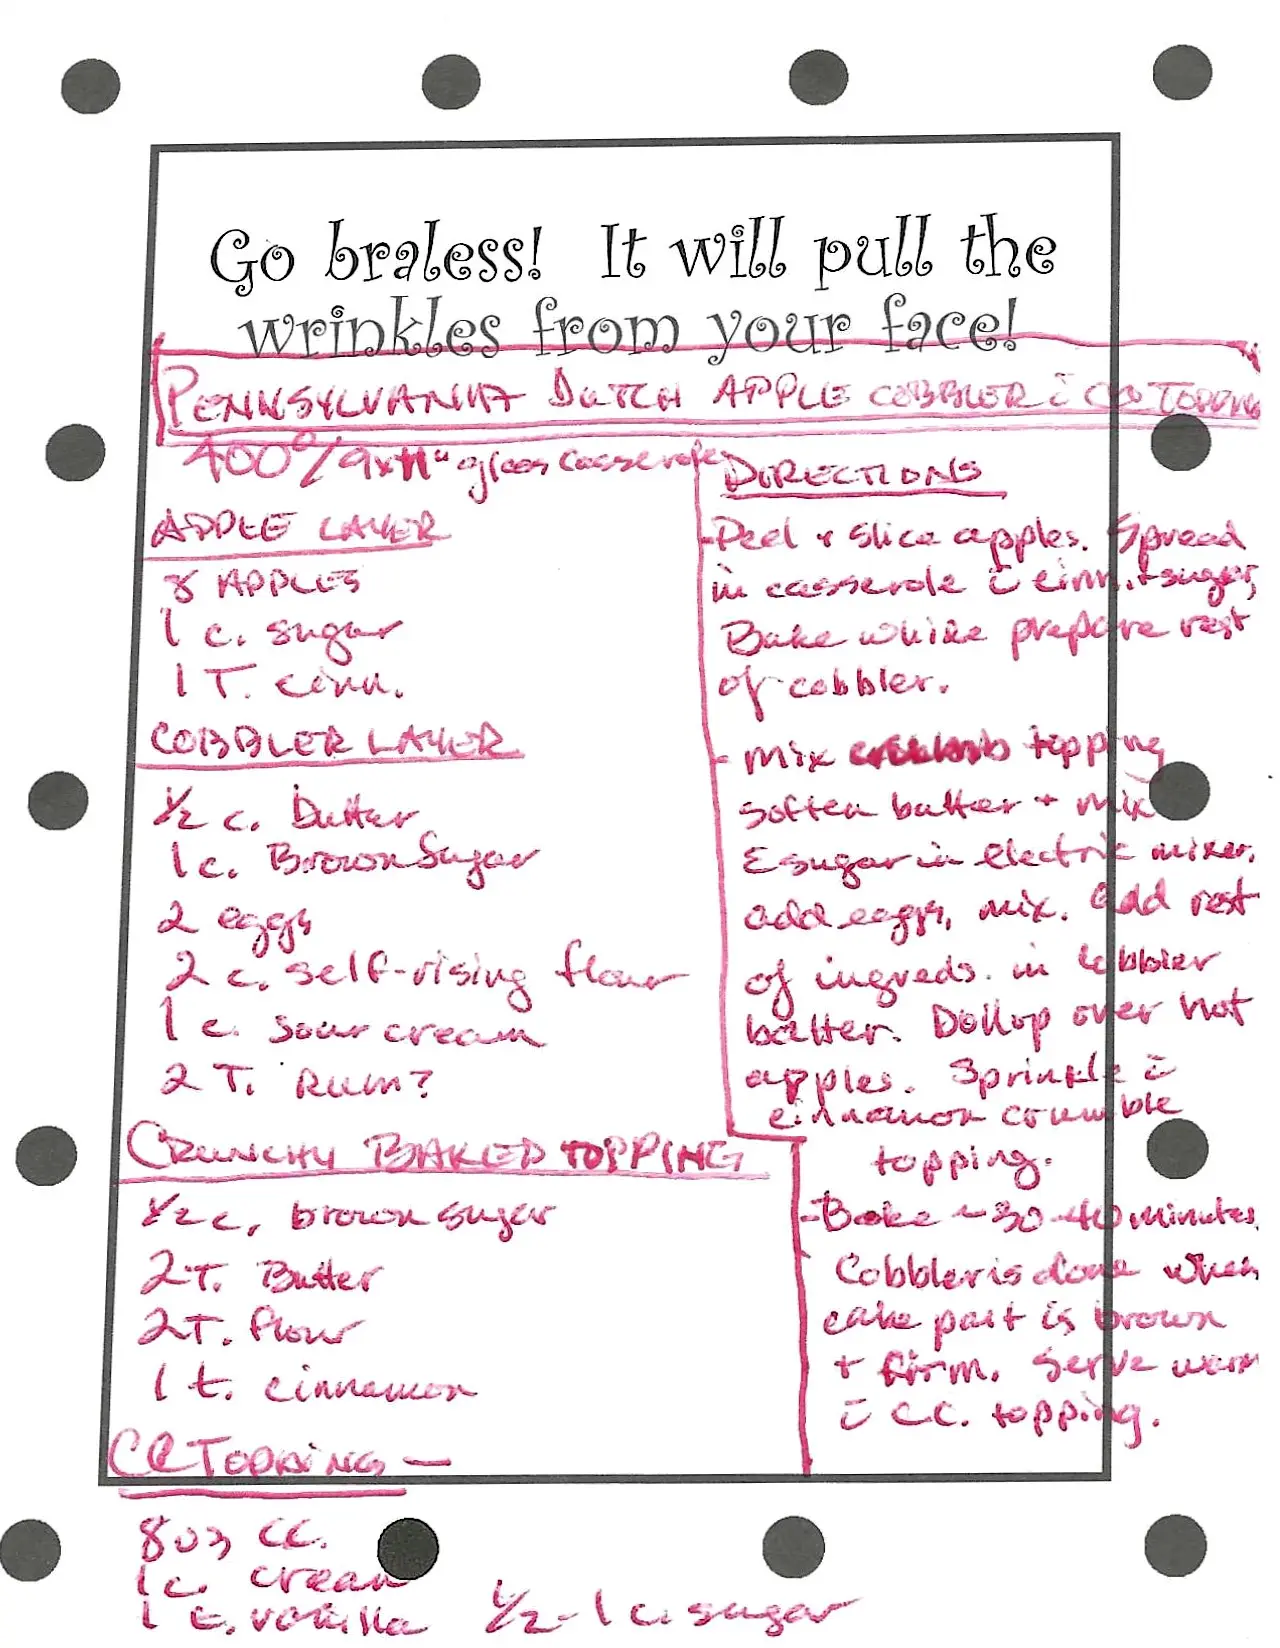 Go braless! It will pull the
wrinkles from your face!
PENNSYLVANIA DUTCH APPLE COBBLER c̄ CC TOPPING
400°/9x11" glass casserole
APPLE LAYER
8 APPLES
1 c. sugar
1 T. cinn.
COBBLER LAYER
1/2 c. Butter
1 c. Brown Sugar
2 eggs
2 c. self-rising flour
1 c. sour cream
2 T. RUM?
CRUNCHY BAKED TOPPING
1/2 c. brown sugar
2 T. Butter
2 T. flour
1 t. cinnamon
CC TOPPING —
8 oz CC.
1 c. cream
1 t. vanilla 1/2 - 1 c. sugar
DIRECTIONS
- Peel + slice apples. Spread
in casserole c̄ cinn. + sugar,
Bake while prepare rest
of cobbler.
- Mix topping
soften butter + mix
c̄ sugar in electric mixer,
add eggs, mix. Add rest
of ingreds. in cobbler
batter. Dollop over hot
apples. Sprinkle c̄
cinnamon crumble
topping.
- Bake ~ 30-40 minutes.
Cobbler is done when
cake part is brown
+ firm. Serve warm
c̄ C.C. topping.